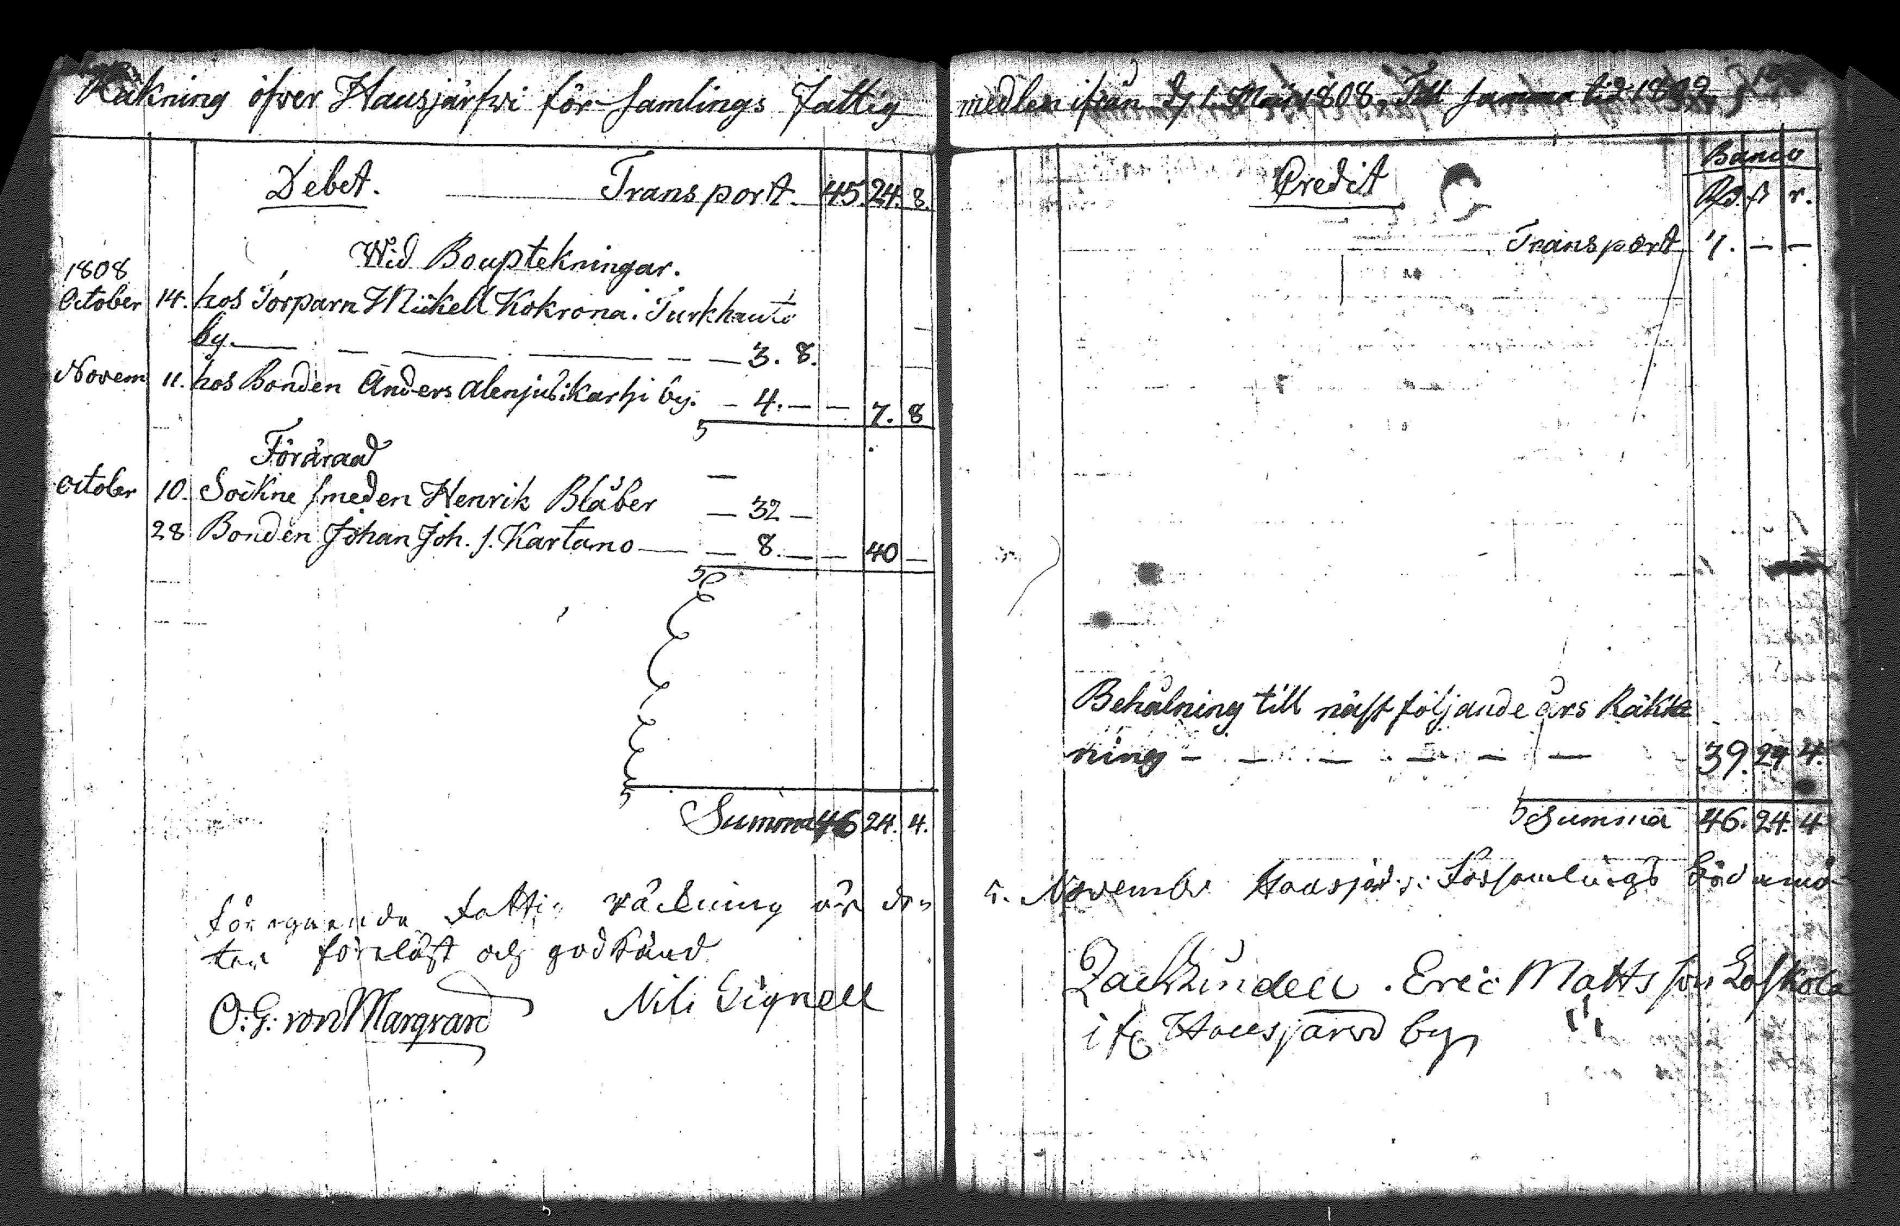 Räkning öfver Hausjärfvi för-samlings Fattig medlen ifrån d. 1. Maji 1808. Till samma tid 1809.
Debet. Transport. 45. 24. 8.
Wid Bouptekningar.
1808
October 14. hos Torparn Mickell Kokrona i Turkhauta
by. — — — — — 3. 8.
Novem 11. hos Bonden Anders Alenjus: Karhi by. — 4. — — 7. 8
Förärad
October 10. Sockne smeden Henrik Blåber — 32 —
28 Bonden Johan Joh. s. Kartano — — 8. — — 40 —
Summa 46 24. 4.
föregående Fattig räckning är
föreläst och godkänd
O: G: von Margrard Nils Lignell
Banco
Credit Rd. ß r.
Transport 7. — —
Behålning till näst följande års Räkk
ning — — — — — — 39. 24 4.
Summa 46. 24. 4
5. November Hausjärvi Församlings
Zach Lindell. Eric Matts son
Hausjärvi by